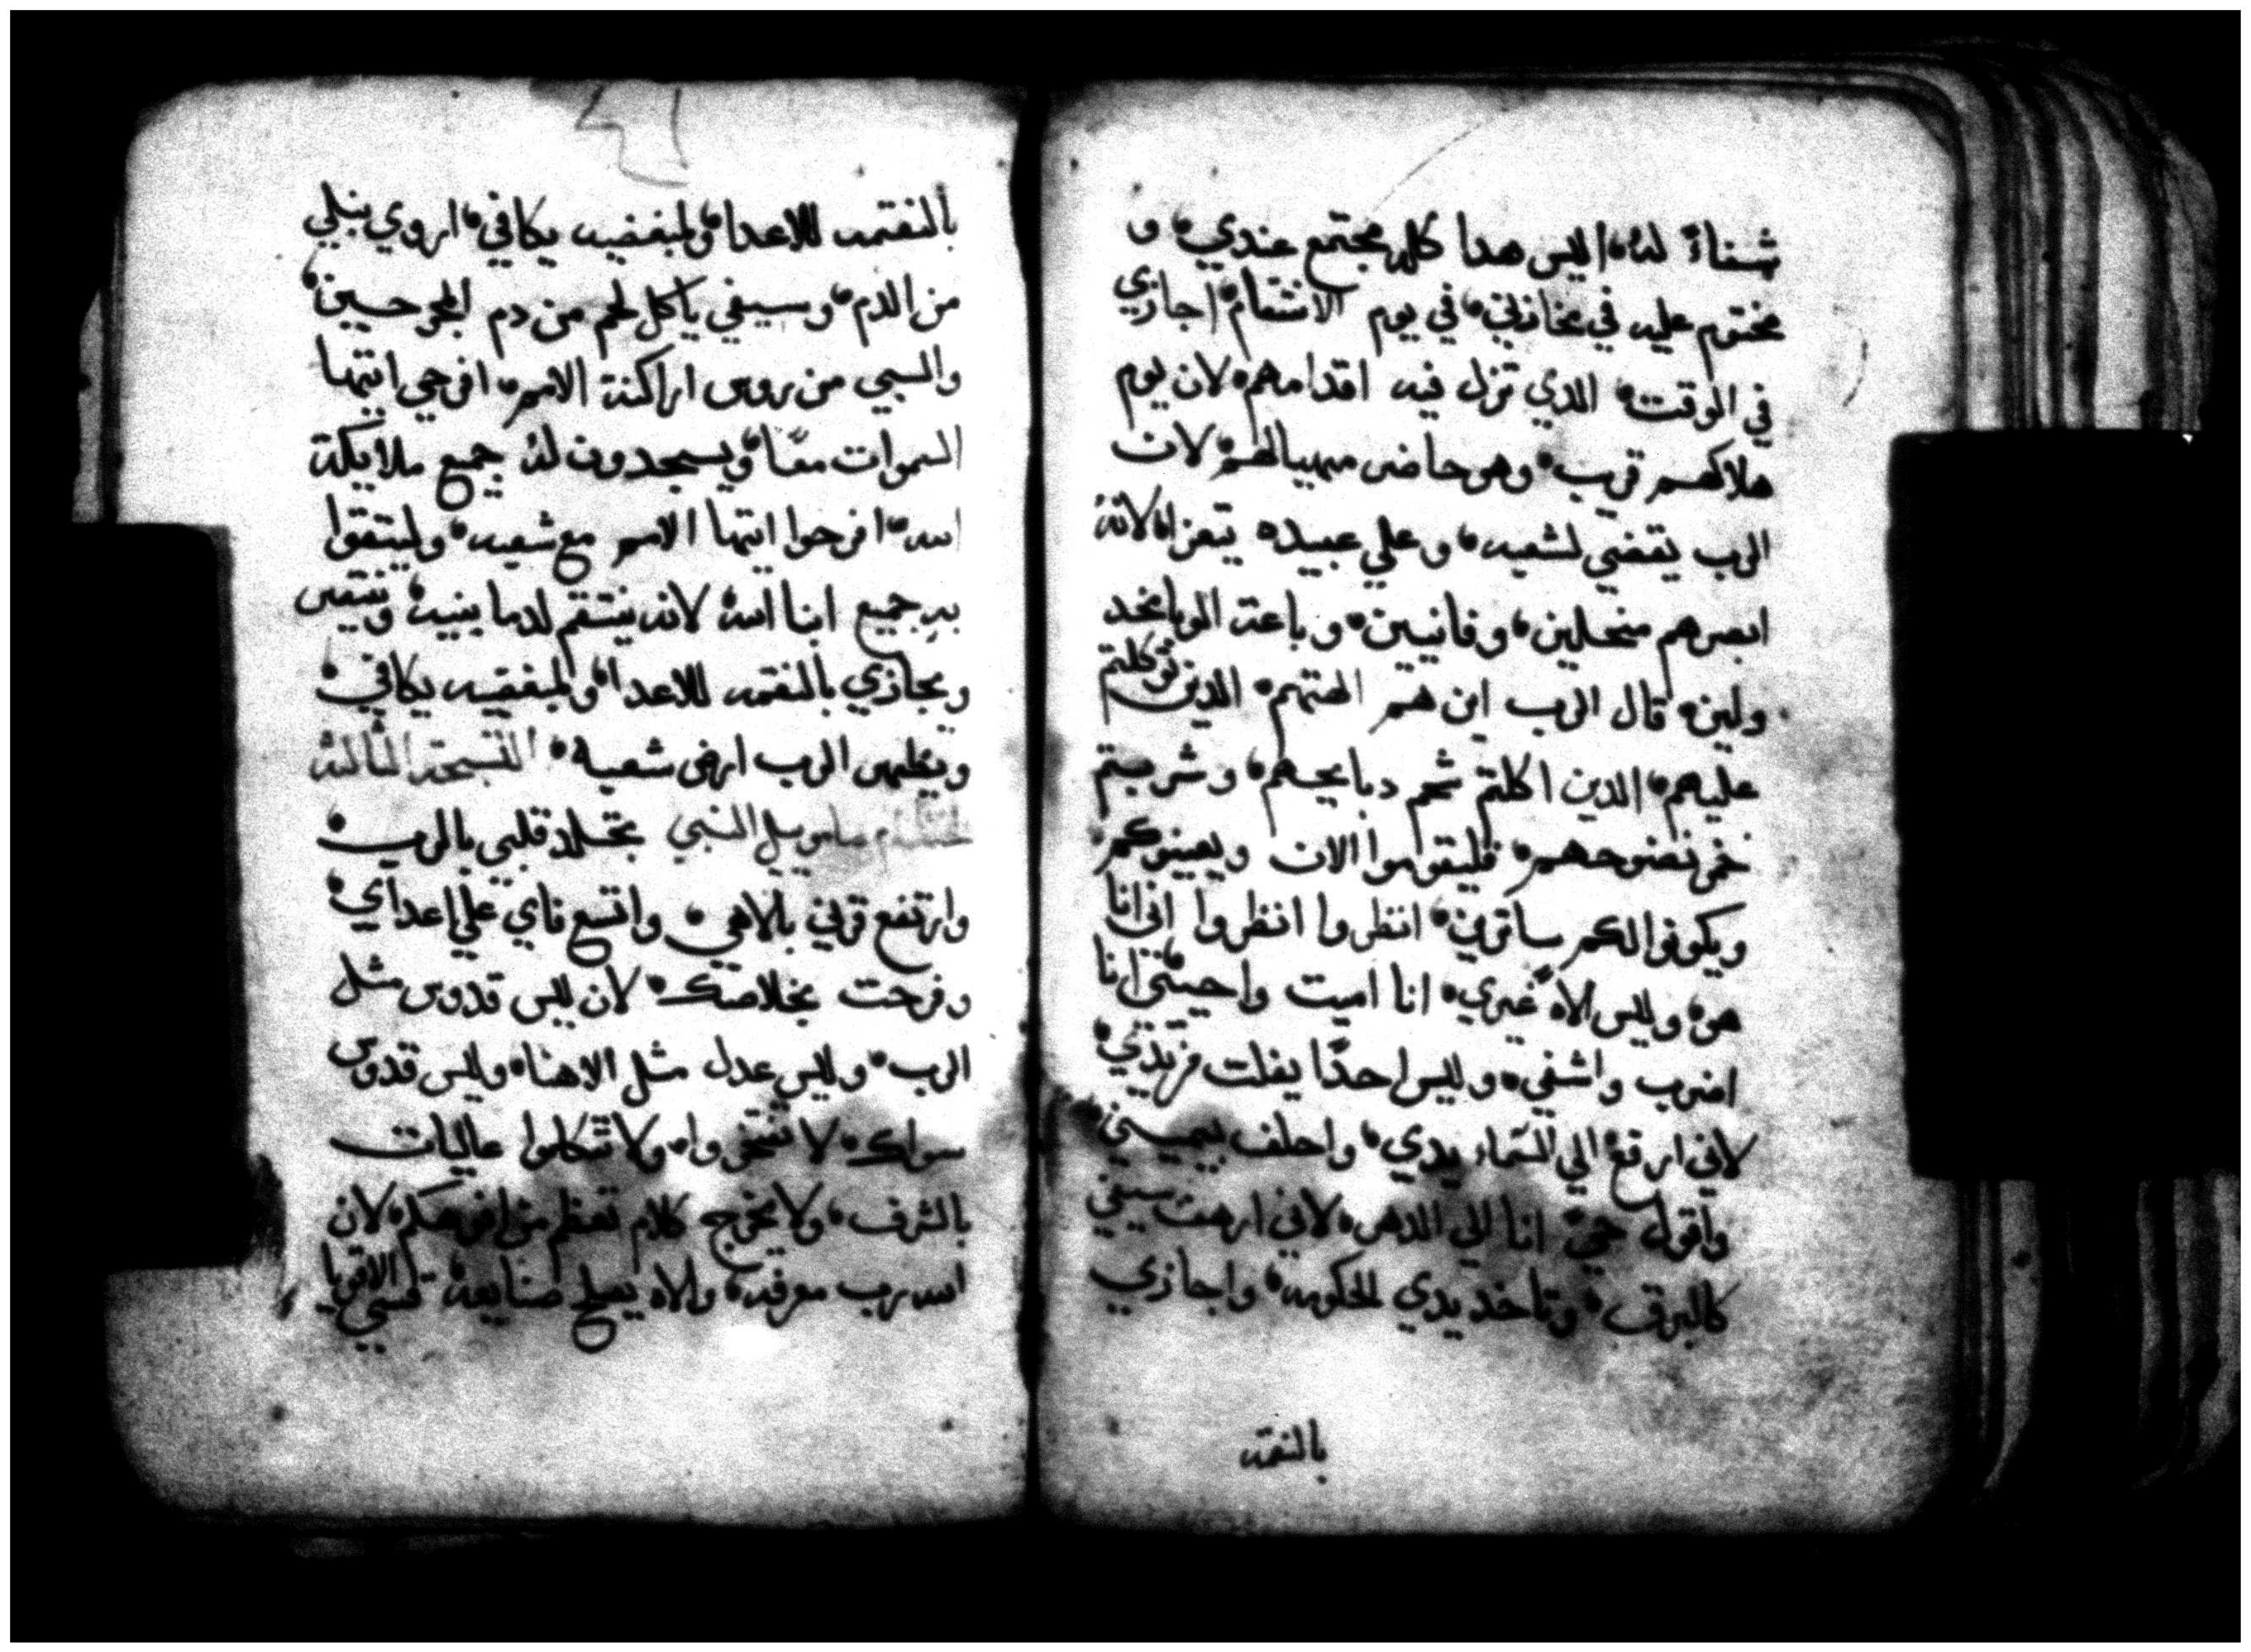 شفاءً له، اليس هدا كله مجتمع عندي، و
مختوم عليه في مخازني، في يوم الانتقام، اجازي
في الوقت، الدي تزل فيه اقدامهم، لان يوم
هلاكهم قريب، وهو حاضر مهيا لهم، لان
الرب يقضي لشعبه، وعلي عبيده يتعزا، لانه
ابصرهم منحلين، وفانيين، وباعة الوبا بخد
ولين، قال الرب اين هم الهتهم، الدين توكلتم
عليهم، الدين اكلتم شحم دبايحهم، وشربتم
خمر نضوحهم، فليقوموا الان ويعينوكم،
ويكونوا لكم ساترين، انظروا انظروا اني انا
هو، وليس الاهً غيري، انا اميت واحيي، انا
اضرب واشفي، وليس احدًا يفلت من يدي،
لاني ارفع الي السماء يدي، واحلف بيميني،
واقول حيً انا الي الدهر، لاني ارهف سيفي
كالبرق، وتاخد يدي الحكومه، واجازي
بالنقمه
بالنقمه للاعدا، ولمبغضيه يكافي، اروي نبلي
من الدم، وسيفي ياكل لحم من دم المجروحين،
والسبي من روس اراكنة الامم، افرحي ايتها
السموات معًا، ويسجدون له جميع ملايكة
الله، افرحوا ايتها الامم مع شعبه، وليتقوا
به جميع ابنا الله لانه ينتقم لدما بنيه، وينتقم
ويجازي بالنقمه للاعدا، ولمبغضيه يكافي،
ويطهر الرب ارض شعبه، التسبحة الثالثة
لحنه ام صامويل النبي يتخلد قلبي بالرب،
وارتفع قرني بالاهي، واتسع فاي علي اعداي،
وفرحت بخلاصك، لان ليس قدوس مثل
الرب، وليس عدل مثل الاهنا، وليس قدوس
سواك، لا تفتخروا، ولا تتكلموا عاليات
بالشرف، ولا يخرج كلام تعظم من افواهكم، لان
الله رب معرفه، والاه يصلح صنايعه، قسي الاقويا